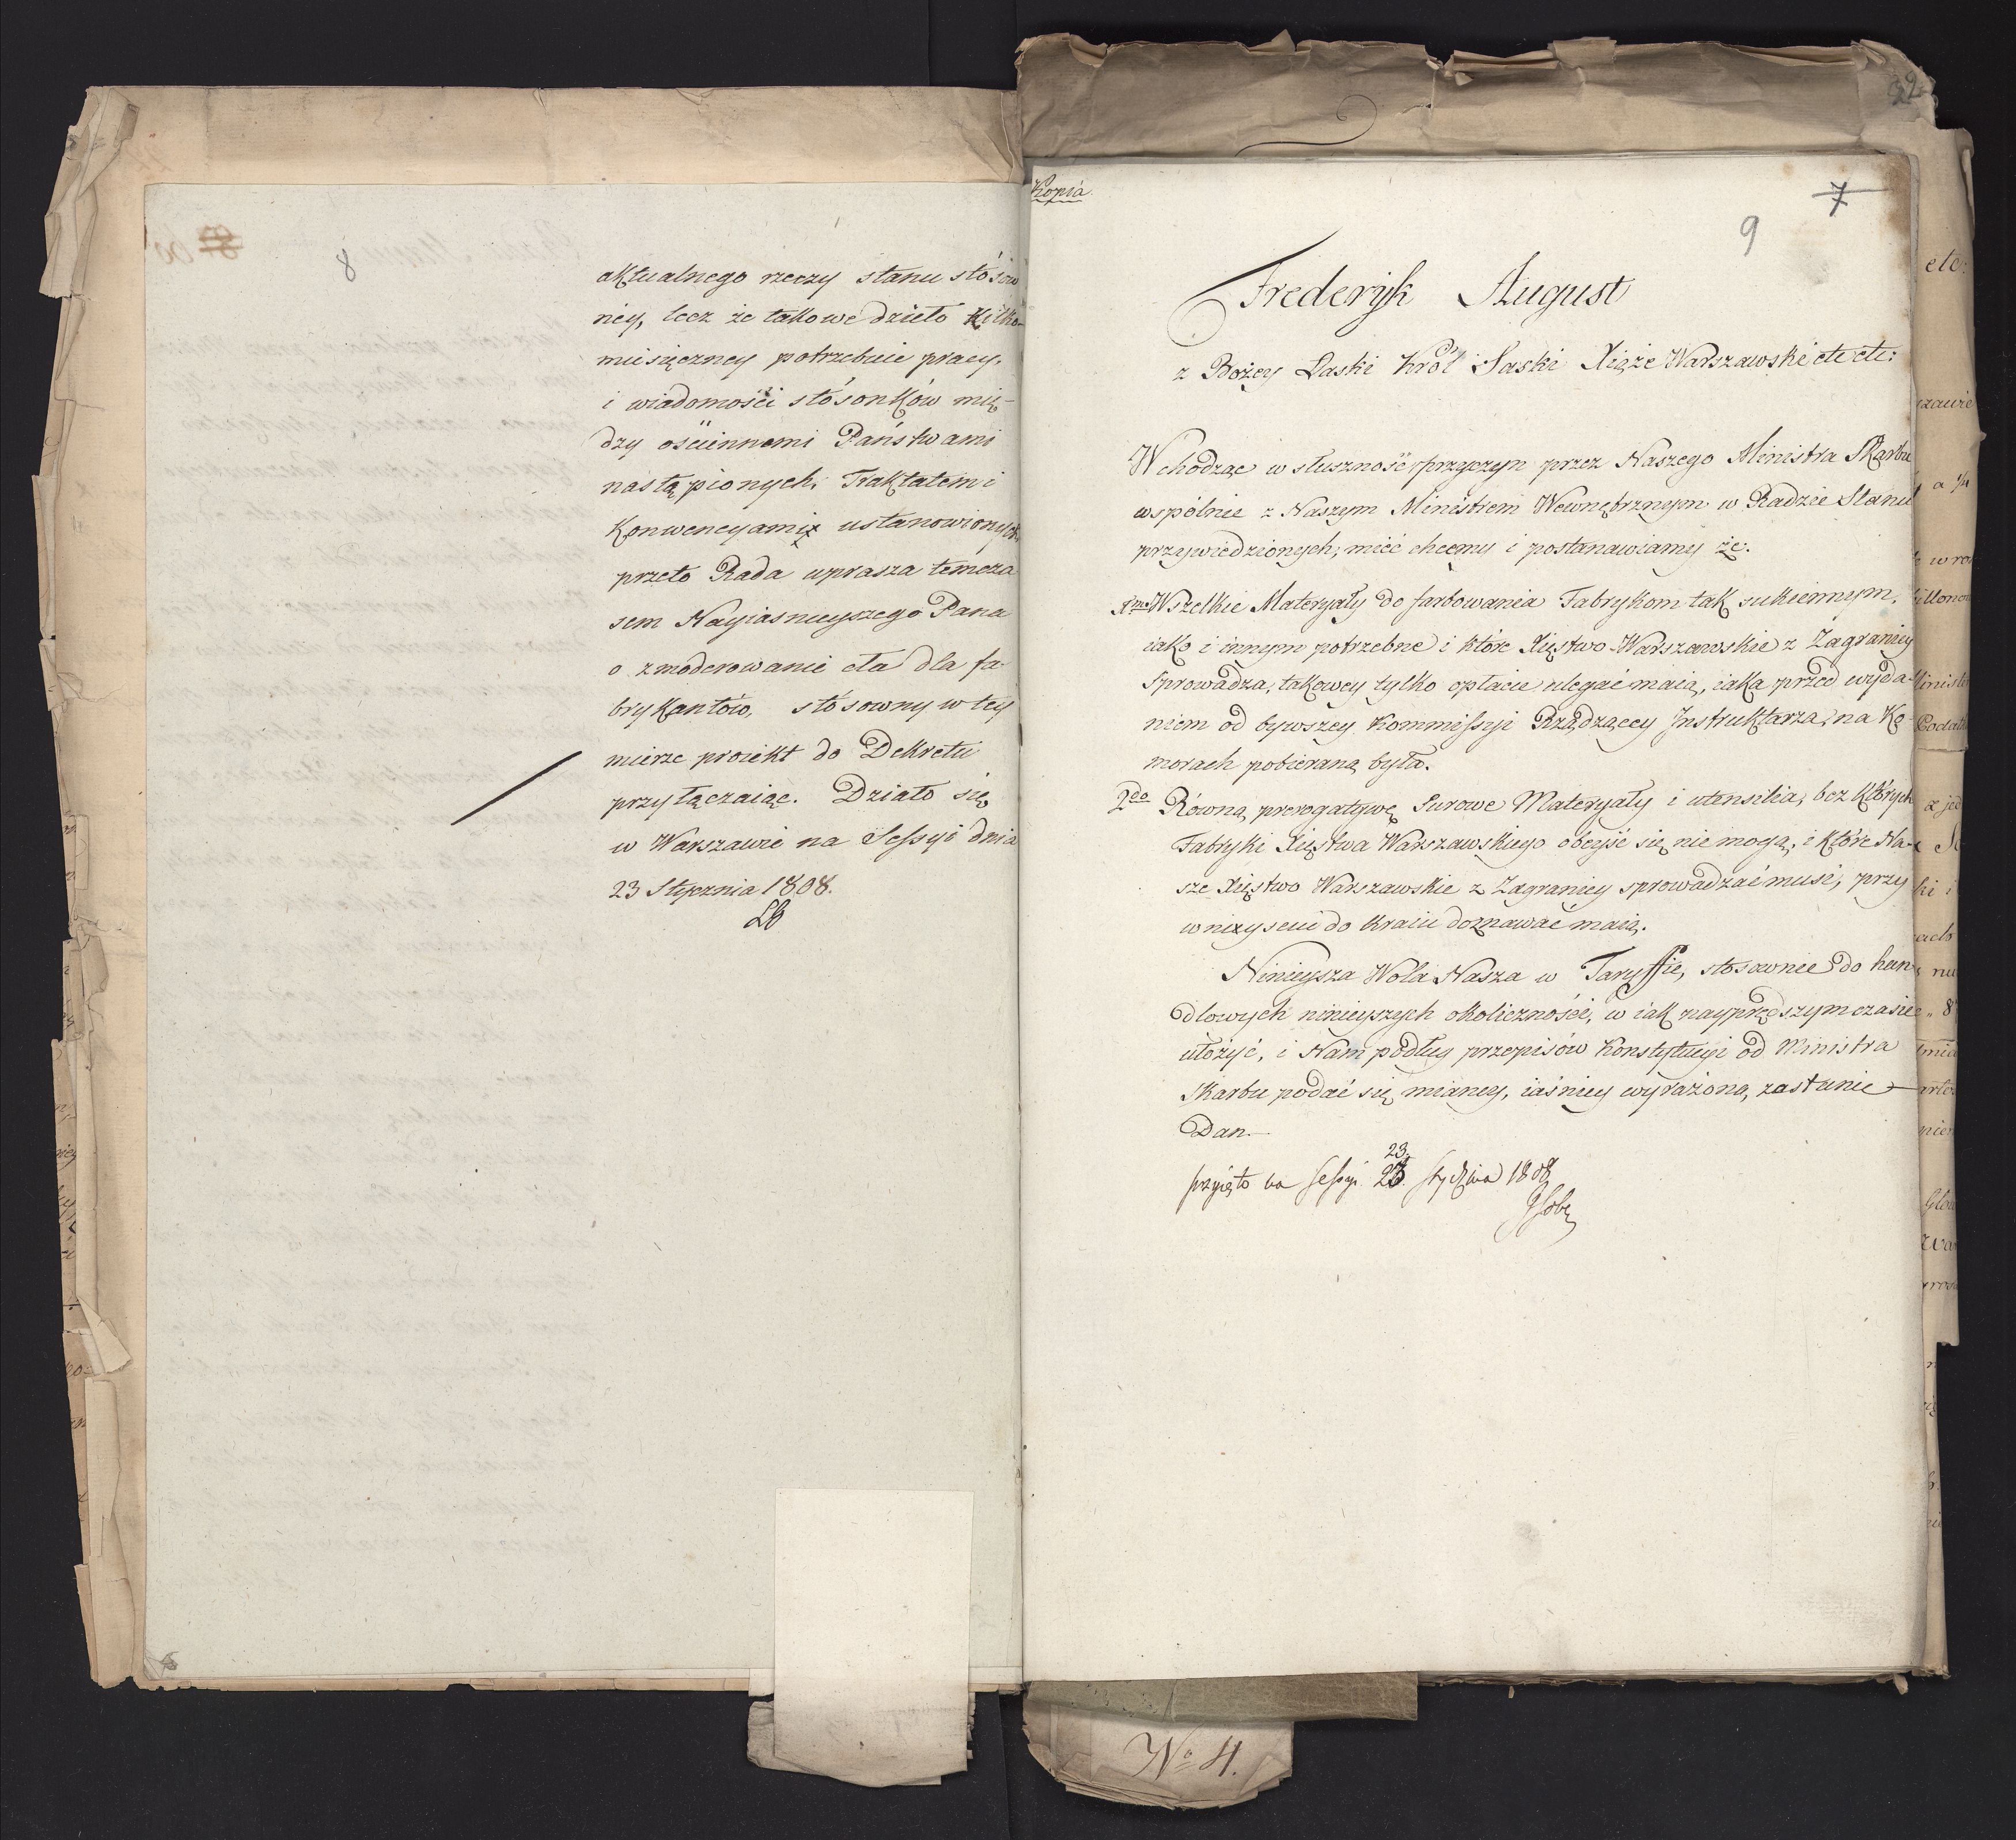 8
aktualnego rzeczy stanu stósow
ney, lecz że takowe dzieło Kilko-
miesięczney potrzebuie pracy,
i wiadomości stósonków mię-
dzy ościennemi Państwami
nastąpionych, Traktatem i
Konwencyami ustanowionych
przeto Rada uprasza temcza
sem Nayiasnieyszego Pana
o zmoderowanie cła dla fa-
brykantów, stósowny w tey
mierze proiekt do Dekretu
przyłączaiąc. Działo się
w Warszawie na Sessyi dnia
23 Stycznia 1808.
Kopia
7
9
Frederyk August
z Bożey Łaski Król Saski Xiąże Warszawski etc etc:
Wchodząc w słuszność przyczyn przez Naszego Ministra Skarbu
wspólnie z Naszym Ministrem Wewnętrznym w Radzie Stanu
przywiedzionych, mieć chcemy i postanawiamy że:
1mo Wszelkie Materyały do farbowania Fabrykom tak sukiennym,
iako i innym potrzebne i które Xięstwo Warszawskie z Zagranicy
sprowadza, takowey tylko opłacie ulegać maią, iaka przed wyda-
niem od bywszey Kommissyi Rządzącey Instruktarza, na Ko-
morach pobieraną była.
2do Równą prerogatywę Surowe Materyały i utensilia, bez których
Fabryki Xięstwa Warszawskiego obeyść się nie mogą, i które Na-
sze Xięstwo Warszawskie z Zagranicy sprowadzać musi, przy
wniyściu do Kraiu doznawać maią.
Ninieysza Wola Nasza w Taryffie, stosownie do han-
dlowych ninieyszych okoliczności, w iak nayprędszym czasie
ułożyć, i Nam podług przepisów Konstytucyi od Ministra
Skarbu podać się mianey, iaśniey wyrażoną zostanie
Dan.
23
przyięto na sessyi 23. stycznia 1808
No 4.